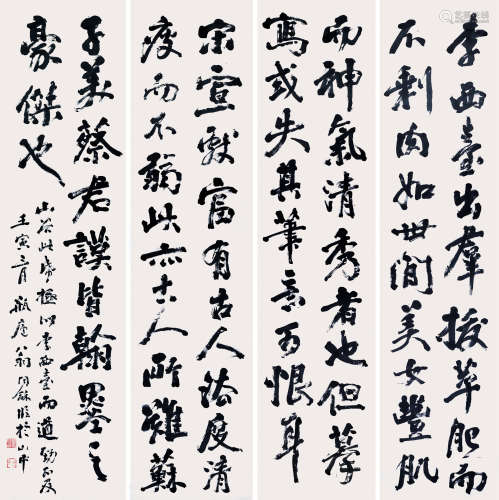 李西臺出羣拔萃肥而
不剩肉如世間美女豐肌
而神氣清秀者也但摹
寫或失其筆意可恨耳
宋宣獻富有古人法度清
瘦而不弱此亦古人所難蘇
子美蔡君謨皆翰墨之
豪傑也
山谷此帖極似李西臺而遒勁不及
壬寅 月瓶廬翁同龢臨於山中